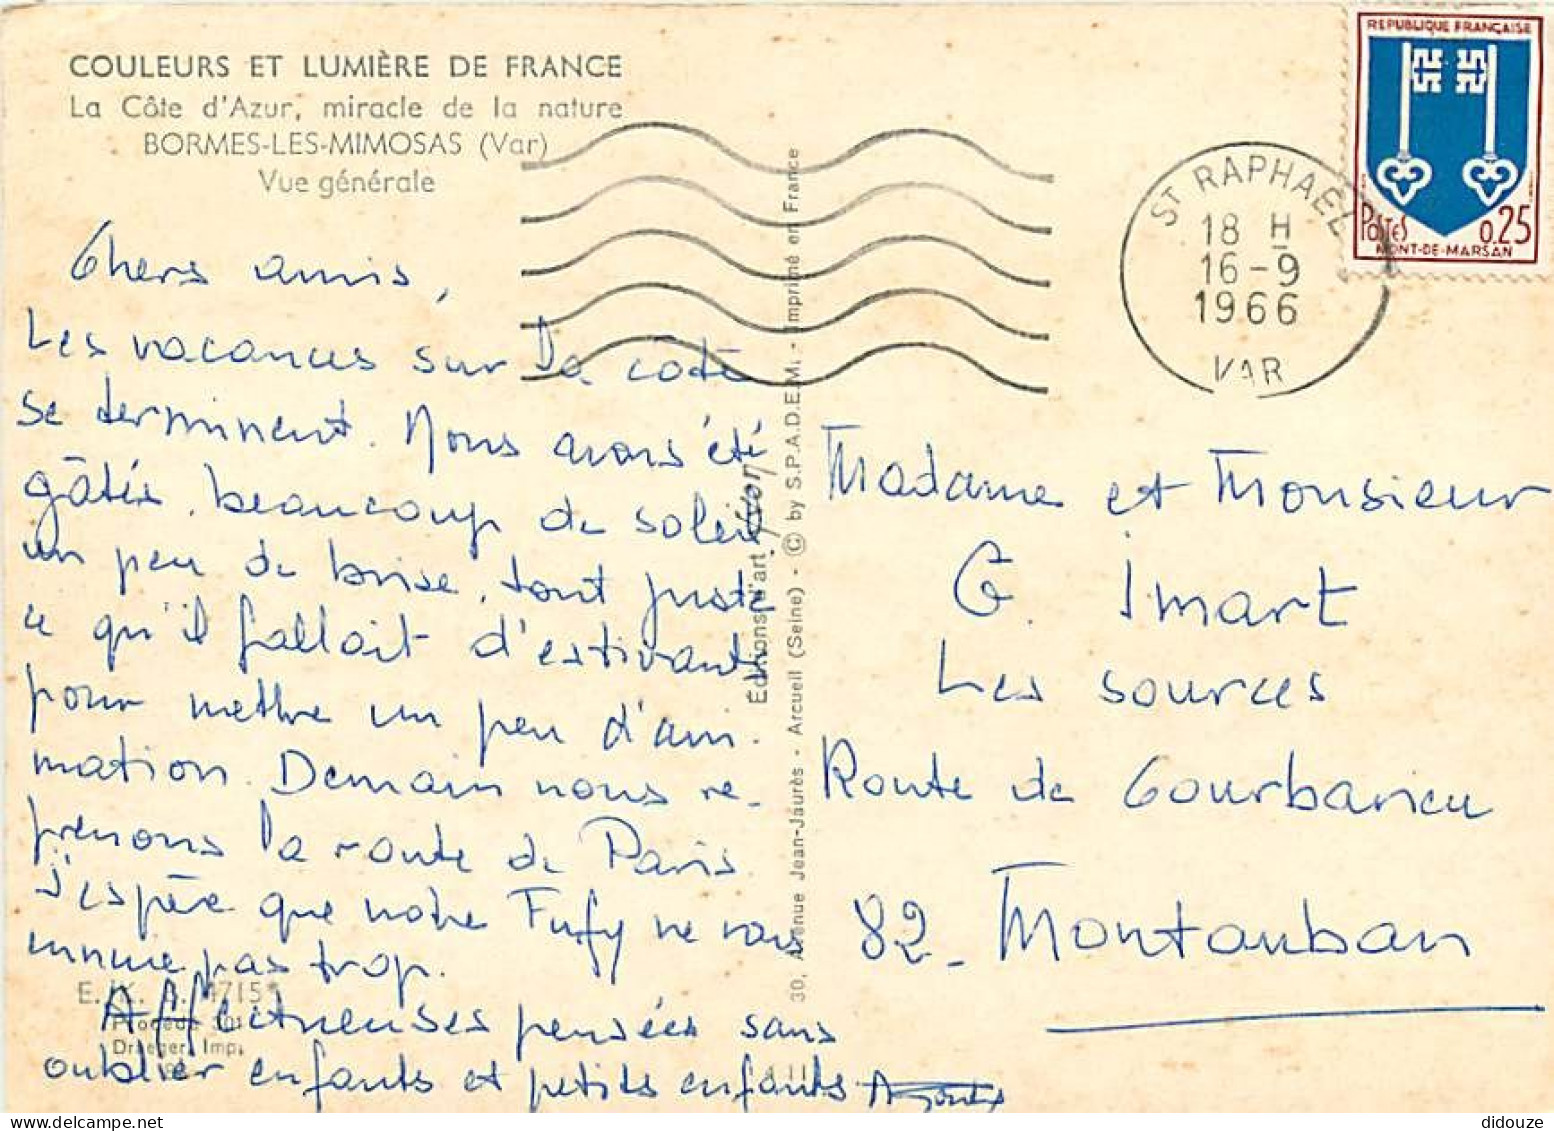 COULEURS ET LUMIÈRE DE FRANCE
La Côte d'Azur, miracle de la nature
BORMES-LES-MIMOSAS (Var)
Vue générale
REPUBLIQUE FRANÇAISE
POSTES 0,25
MONT-DE-MARSAN
ST RAPHAEL
18 H
16-9
1966
VAR
Chers amis,
Les vacances sur la côte
se terminent. Nous avons été
gâtés, beaucoup de soleil
un peu de brise, tout juste
ce qu'il fallait d'estivants
pour mettre un peu d'ani-
mation. Demain nous re-
prenons la route de Paris.
J'espère que notre Fufy ne vous
ennuie pas trop.
Affectueuses pensées sans
oublier enfants et petits enfants
Éditions d'art Yvon
30, Avenue Jean-Jaurès - Arcueil (Seine) - © by S.P.A.D.E.M. - Imprimé en France
Madame et Monsieur
G. Imart
Les sources
Route de Courbarieu
82 - Montauban
4715
Draeger, Imp.
didouze